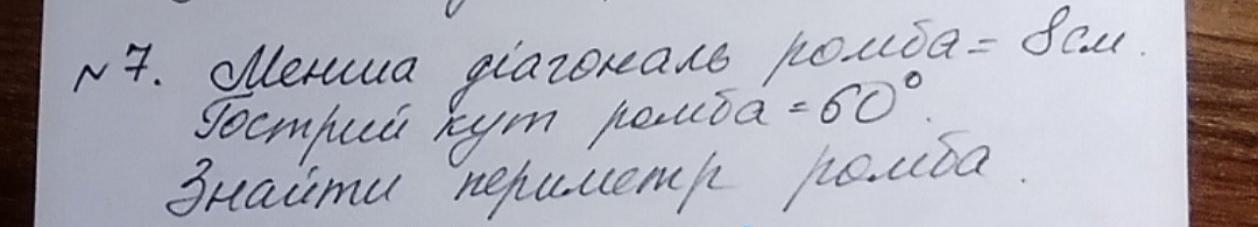 №7. Менша діагональ ромба = 8см.
Гострий кут ромба = 60°.
Знайти периметр ромба.